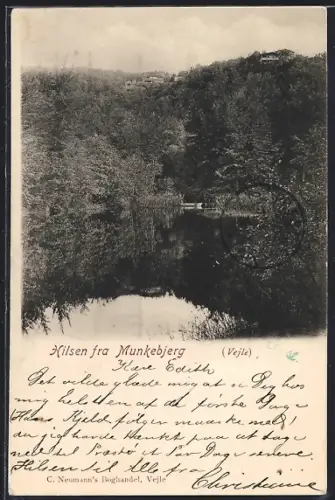 Hilsen fra Munkebjerg (Vejle)
Kære Edith
Det vilde glæde mig at se Dig hos
mig helst en af de første Dage
(Hans Kjeld følger maaske med)
da jeg havde tænkt paa at tage
ned til et Par Dage senere.
Hilsen til Alle fra
Christiane
C. Neumann's Boghandel, Vejle